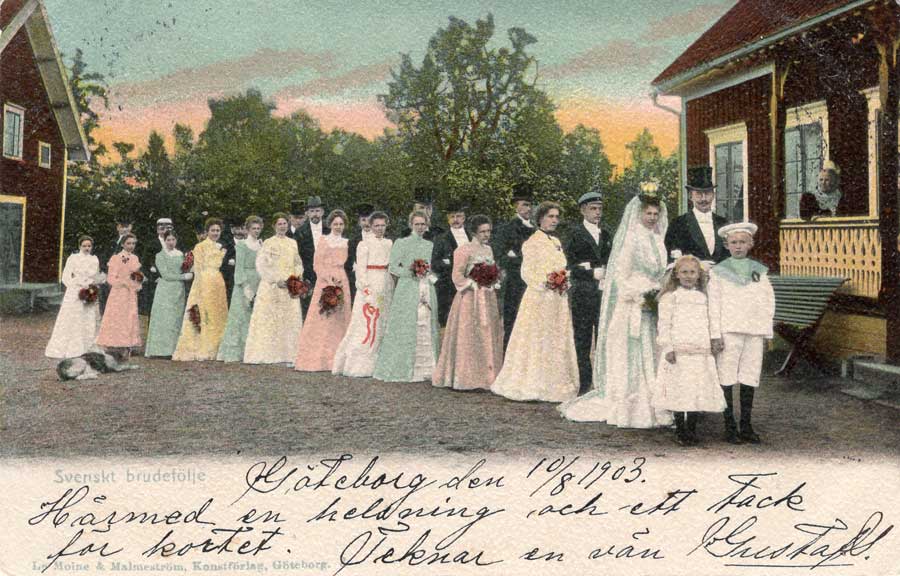 Svenskt brudefölje
Göteborg den 10/8 1903.
Härmed en helsning och ett tack
för kortet. Tecknar en vän Gustaf
Le Moine & Malmeström, Konstförlag, Göteborg.